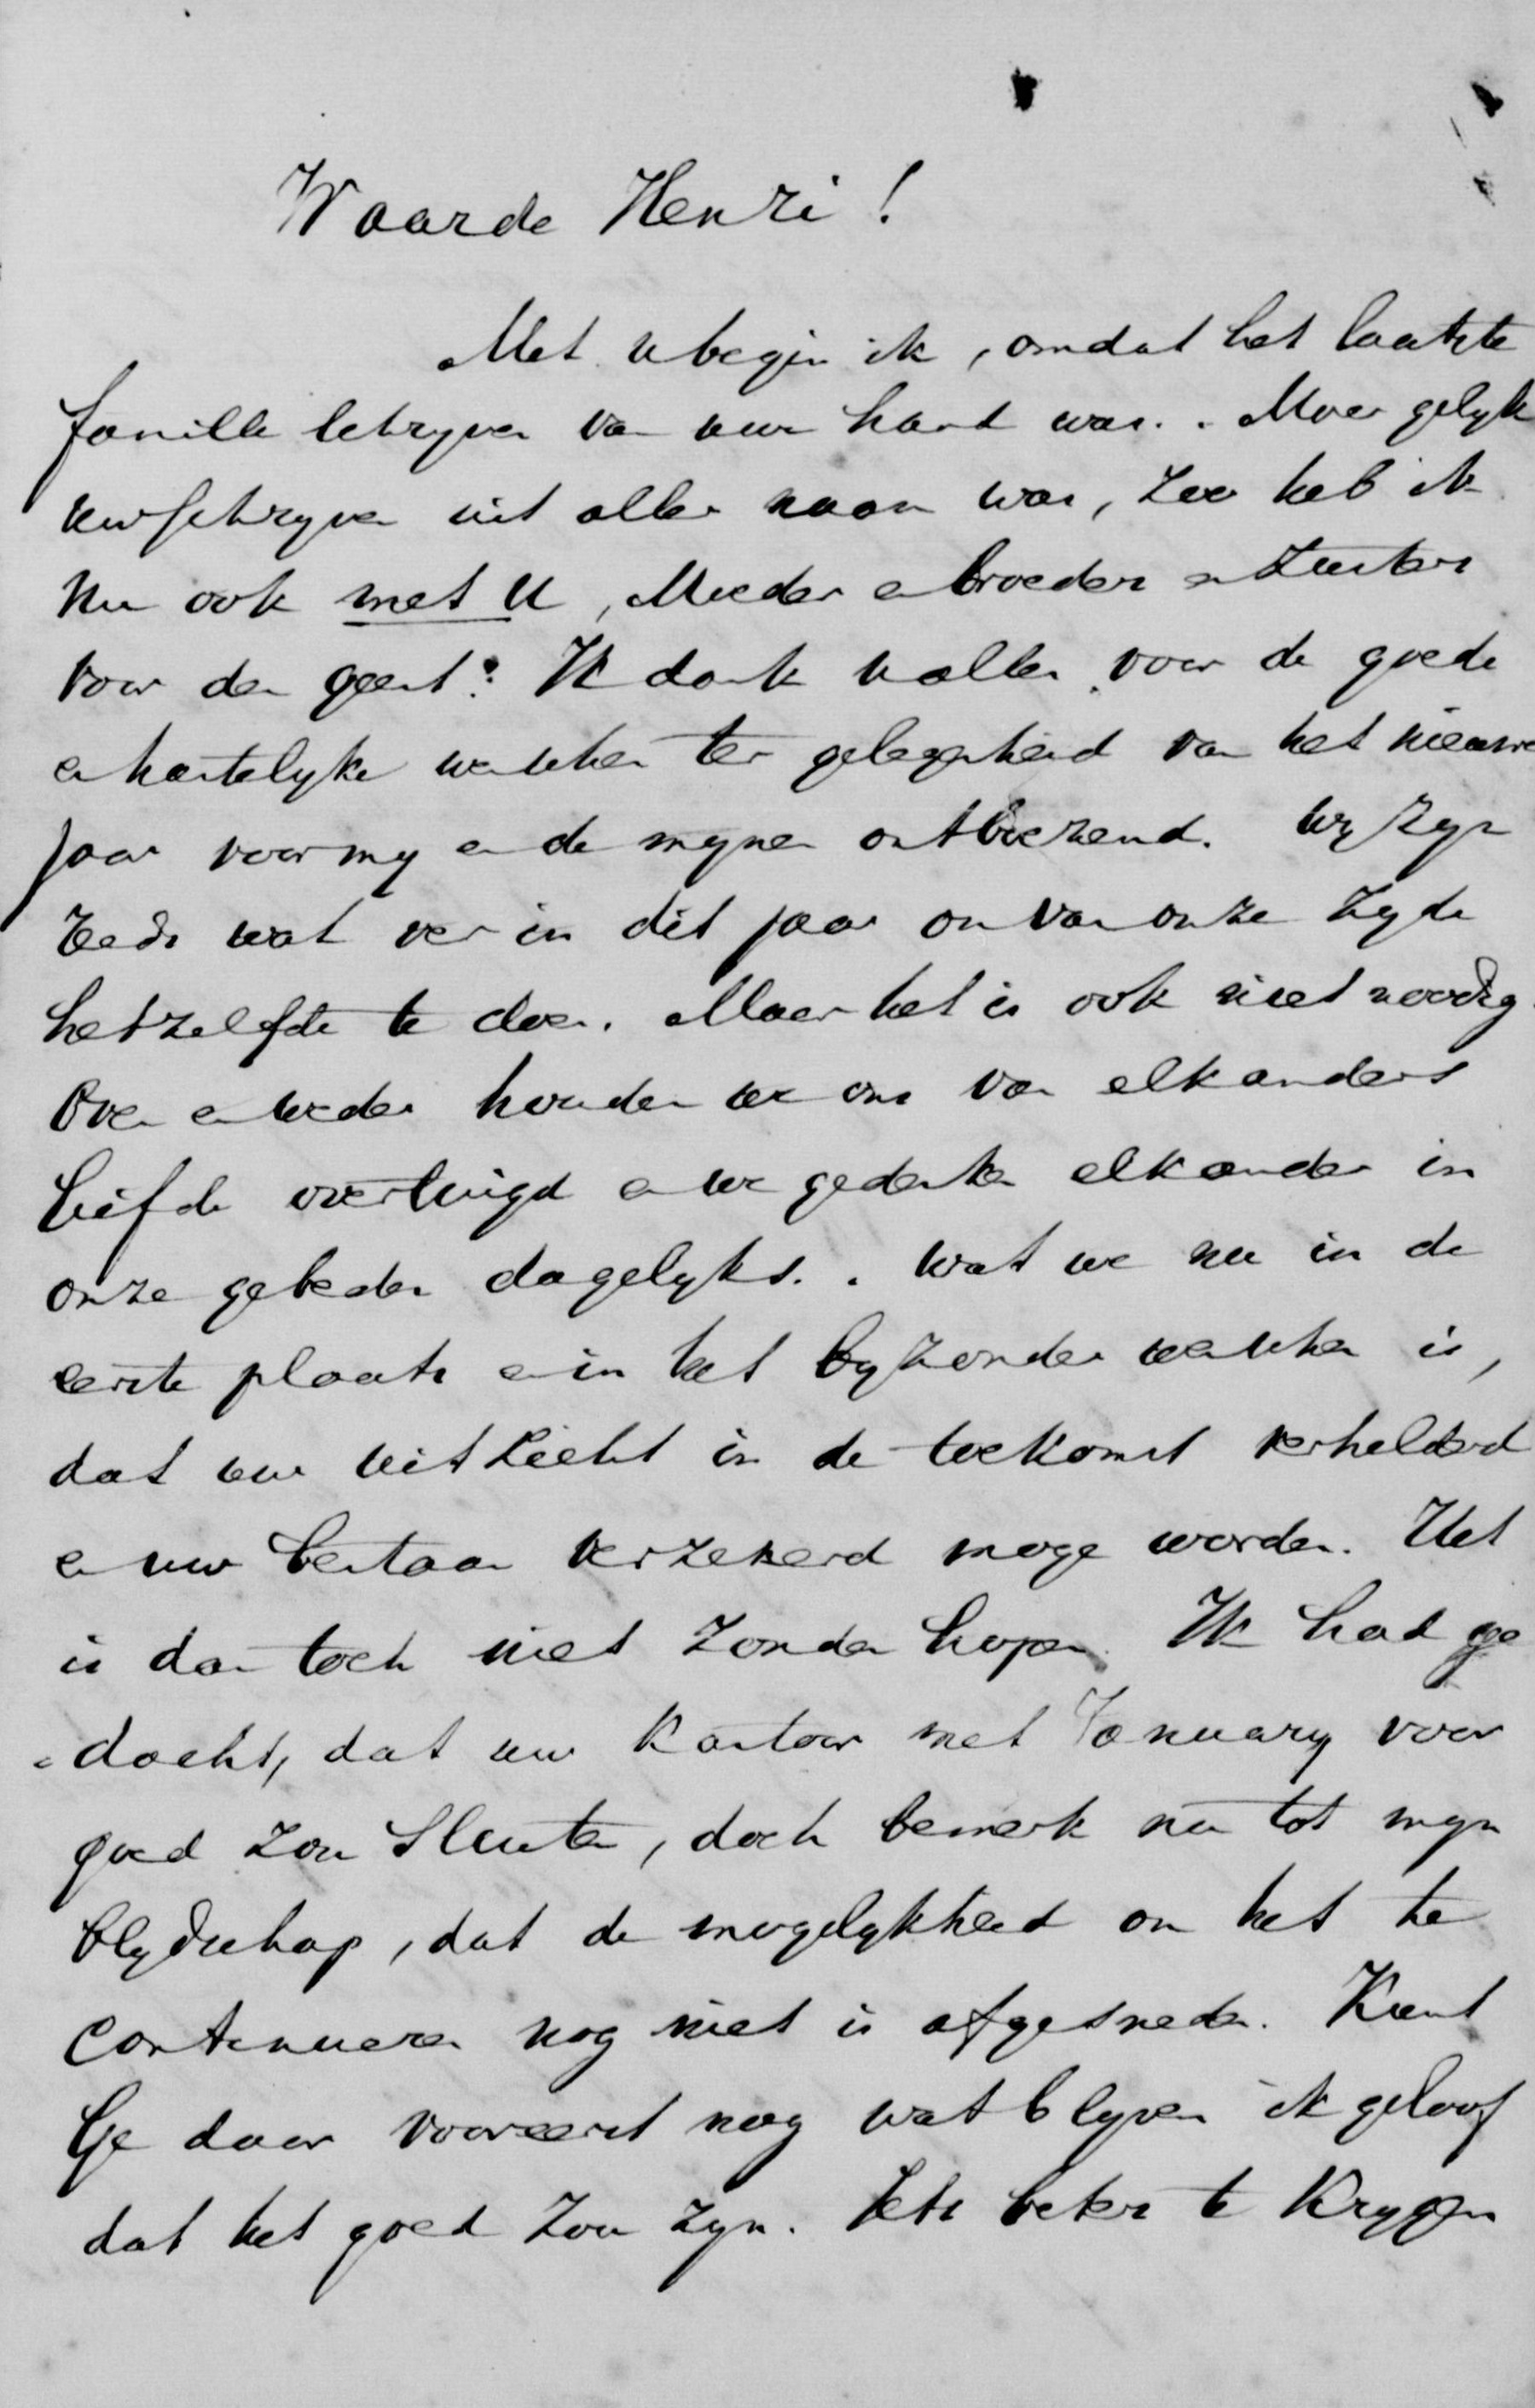 Waarde Henri!
Met u begin ik, omdat het laatste
familie schryven van uw hand was. . Maar gelyk
uw schryven uit aller naam was, zoo heb ik
nu ook met U, Moeder en broeders en zusters
voor den geest: Ik dank u allen voor de goede
en hartelyke wenschen ter gelegenheid van het nieuwe
jaar voor my en de mynen ontboezemd. Wy zyn
reeds wat ver in dit jaar om van onze zyde
hetzelfde te doen. Maar het is ook niet noodig.
Over en weder houden we ons van elkanders
liefde overtuigd en we gedenken elkander in
onze gebeden dagelyks. . Wat we nu in de
eerste plaats en in het byzonder wenschen is,
dat uw uitzicht in de toekomst verhelderd
en uw bestaan verzekerd moge worden. Het
is dan toch niet zonder hopen. Ik had ge
=dacht, dat uw kantoor met January voor
goed zou sluiten, doch bemerk nu tot myn
blydschap, dat de mogelykheid om het te
continueren nog niet is afgesneden. Kunt
Ge daar vooreerst nog wat blyven ik geloof
dat het goed zou zyn. Iets beters te krygen